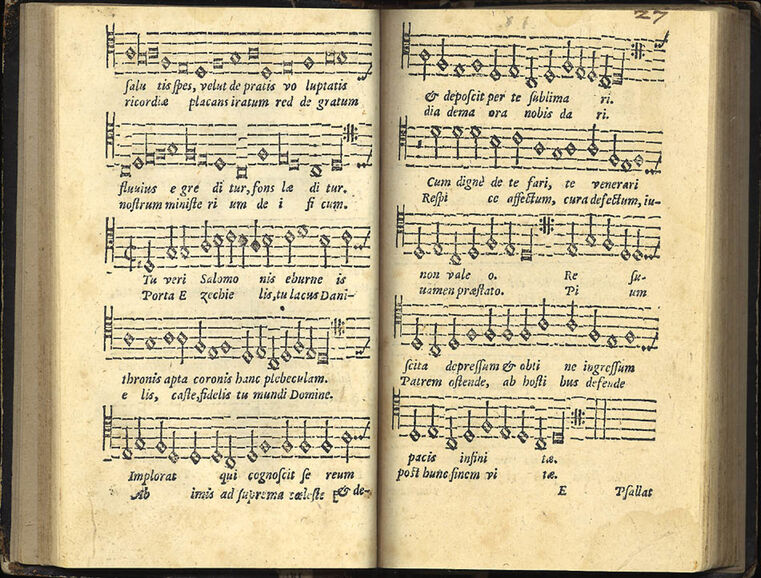 salu tis spes, velut de pratis vo luptatis
ricordiæ placans iratum red de gratum
fluuius e gre di tur, fons læ di tur.
nostrum ministe ri um de i fi cum.
Tu veri Salomo nis eburne is
Porta E zechie lis, tu lacus Dani-
thronis apta coronis hanc plebeculam.
e lis, caste, fidelis tu mundi Domine.
Implorat qui cognoscit se reum
Ab imis ad suprema cœleste & de-
27
& deposcit per te sublima ri.
dia dema ora nobis da ri.
Cum dignè de te fari, te venerari
Respi ce affectum, cura defectum, iu-
non vale o. Re su-
uamen præstato. Pi um
scita depressum & obti ne ingressum
Patrem ostende, ab hosti bus defende
pacis infini tæ.
post hunc finem vi tæ.
E Psallat